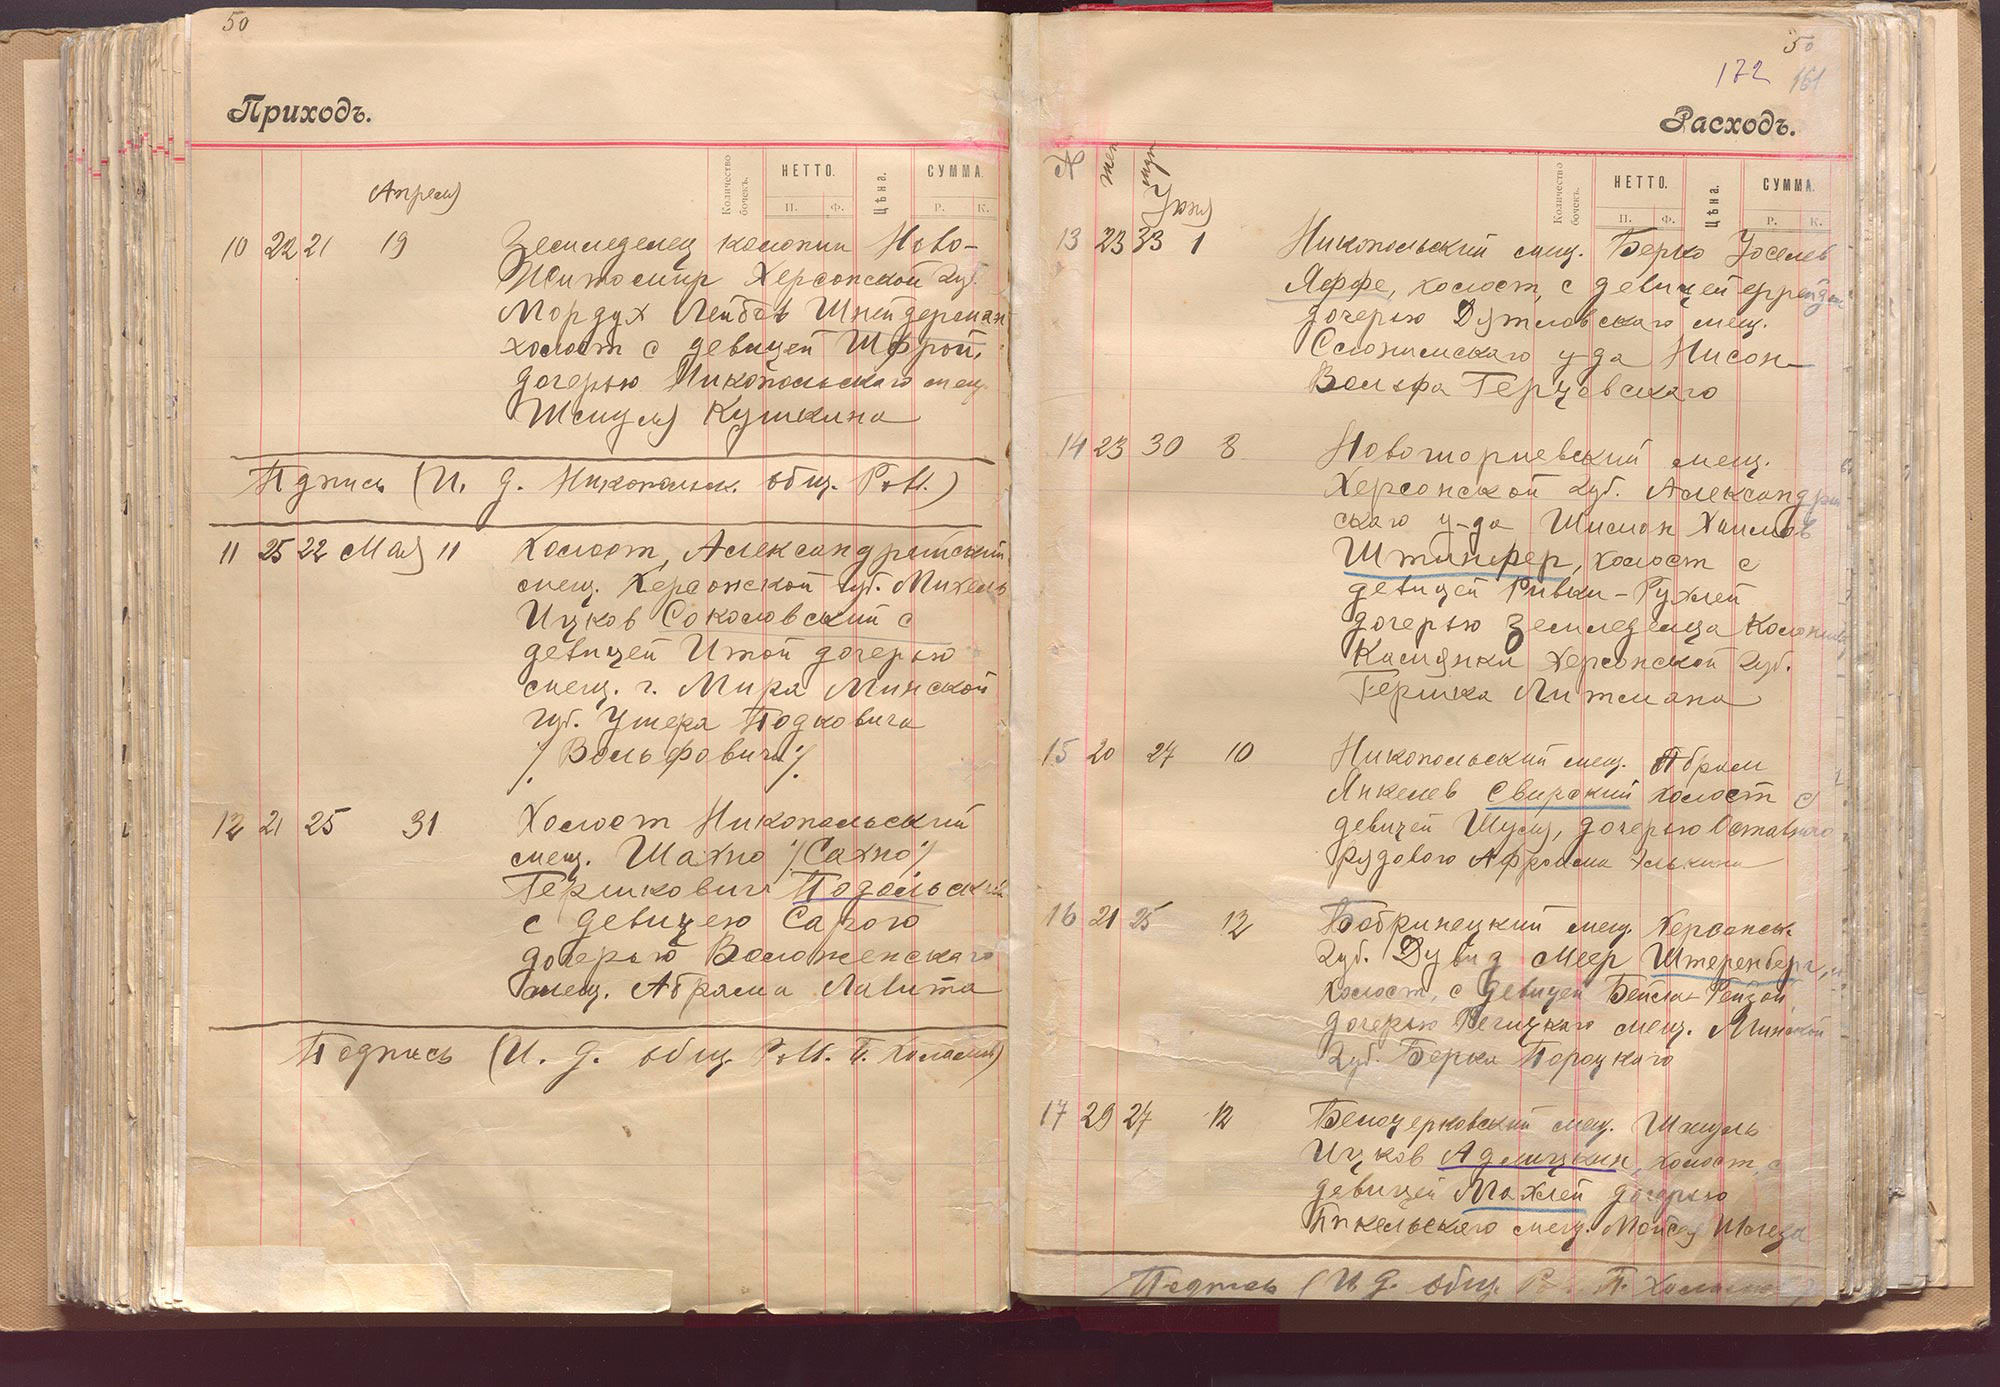 50
Приходъ.
Количество бочекъ.
НЕТТО.
П. Ф.
Цѣна.
СУММА.
Р. К.
Апреля
10 22 21 19 Земледелец колонии Ново-
Житомир Херсонской губ.
Мордух Лейбов Шнейдерман
холост с девицей Шфрой,
дочерью Никопольскаго мещ.
Шмуля Кушкина
Пдпись (И. д. Никопольск. общ. Р. М.)
11 25 22 Мая 11 Холост, Александрийский
мещ. Херсонской губ. Михель
Ицков Соколовский с
девицей Итой дочерью
мещ. г. Мира Минской
губ. Ушера Подковича
/Вольфовича/.
12 21 25 31 Холост Никопольский
мещ. Шахно /Сахно/
Гершкович Подольский
с девицею Сарою
дочерью Воложенскаго
мещ. Абрама Лавита
Подпись (И. д. общ. Р. М. П.
50
172 161
Расходъ.
№ жен муж
Количество бочекъ.
НЕТТО.
П. Ф.
Цѣна.
СУММА.
Р. К.
Июня
13 23 33 1 Никопольский мещ. Берко Иоселев
Яффе, холост, с девицей Фрейдой
дочерью мещ.
Слонимскаго у-да Нисон-
Вольфа Герцовскаго
14 23 30 8 Новогориевский мещ.
Херсонской губ. Александрий
скаго у-да Шимон Хаимов
Штинфер, холост с
девицей Ривки-Рухлей
дочерью земледельца колонии
Камянки Херсонской губ.
Гершка Литмана
15 20 27 10 Никопольский мещ. Абрам
Янкелев Свирский холост с
девицей Шулей, дочерью Отставного
рядового Афроима Элькина
16 21 25 12 Бобринецкий мещ. Херсонск.
губ. Дувид Меер Штеренберг,
холост, с девицей Бейлой Рейзой
дочерью Речицкаго мещ. Минской
губ. Берка Пороцкаго
17 29 27 12 Белоцерковский мещ. Шмуль
Ицков Адмицкин, холост, с
девицей Махлей дочерью
мещ. Мойсея
Подпись (И. д. общ. Р. П.